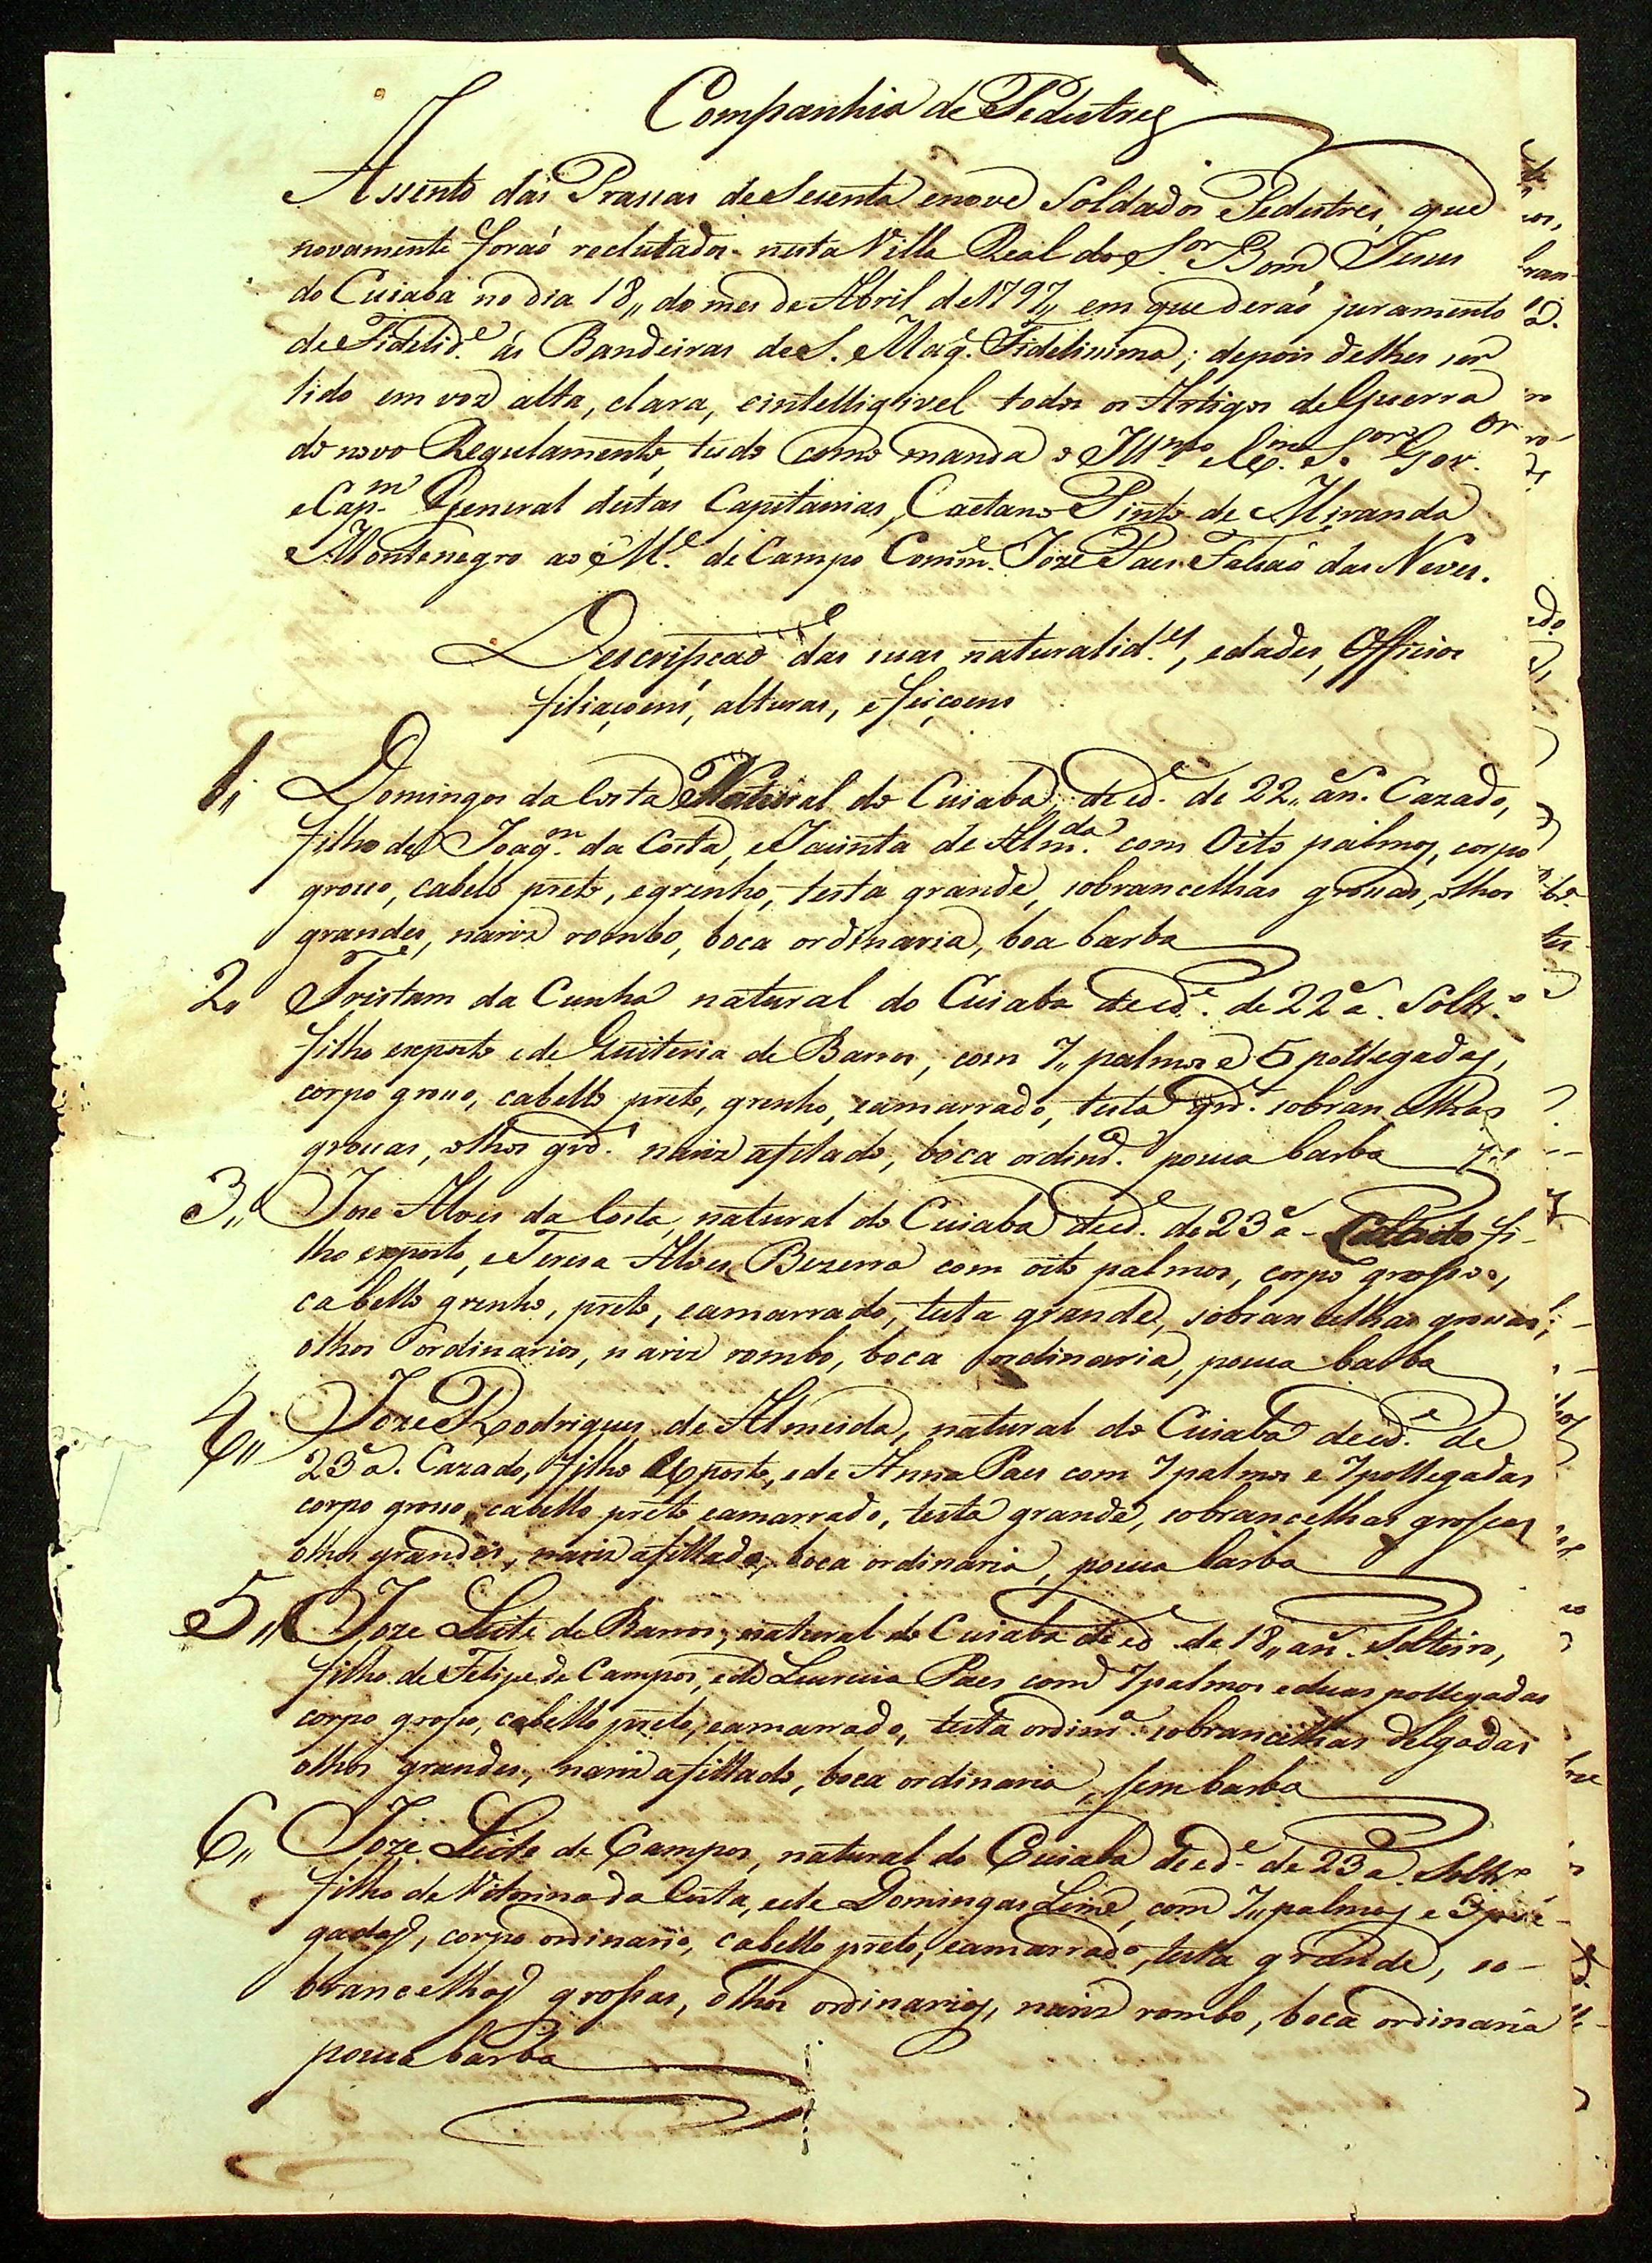 Companhia de Pedestres
Assento das Prassas de Secenta e nove Soldados Pedestres, que
novamente foraõ reclutados nesta Villa Real do S.or Bom Jesus
do Cuiabá no dia 18,, do mes de Abril de 1797,, em que deraó juramento
de Fidelid.e ás Bandeiras de S. Mag.e Fidelissima; depois de lhes ser
lido em voz alta, clara, e intelligivel todos os Artigos de Guerra
do novo Regulamento, tudo como manda o Ill.mo e Ex.mo S.or Gov.or
e Cap.m General destas Capitanias, Caetano Pinto de Miranda
Montenegro ao M.e de Campo Comm.e Joze Paes Falcaõ das Neves.
Descripçaõ das suas naturalid.es, edades, Officios
filiaçoens, alturas, e feiçoens
1,, Domingos da Costa Natural do Cuiabá, de ed.e de 22,, an. Cazado,
filho de Joaq.m da Costa, e Jacinta de Alm.da com Oito palmos, corpo
grosso, cabelo preto, e grenho, testa grande, sobrancelhas grossas, olhos
grandes, nariz rombo, boca ordinaria, boa barba
2,, Tristam da Cunha natural do Cuiaba de ed.e de 22 a. Soltr.o
filho exposto e de Quiteria de Barros, com 7,, palmos e 5 pollegadas,
corpo grosso, cabello preto, grenho, e amarrado, testa grd.e sobrancelhas
grossas, olhos grd.s nariz afilado, boca ordin.a pouca barba
3,, Jose Alves da Costa, natural do Cuiaba de ed.e de 23 a - Solteiro fi-
lho exposto, e Teresa Alves Bezerra com oito palmos, corpo grosso,
cabello grenho, preto, e amarrado, testa grande, sobrancelhas grossas,
olhos ordinarios, nariz rombo, boca ordinaria, pouca barba
4,, Joze Rodrigues de Almeida, natural do Cuiaba de ed.e de
23 a. Cazado, filho exposto, e de Anna Paes com 7 palmos e 7 pollegadas
corpo grosso, cabello preto e amarrado, testa grande, sobrancelhas grossas
olhos grandes, nariz afillado, boca ordinaria, pouca barba
5,, Joze Leite de Barros, natural do Cuiaba de ed.e de 18,, an. Solteiro,
filho de Felipe de Campos, e de Lucrecia Paes com 7 palmos e duas pollegadas
corpo grosso, cabello preto, e amarrado, testa ordin.a sobrancelhas delgadas
olhos grandes, nariz afillado, boca ordinaria, sem barba
6,, Joze Leite de Campos, natural do Cuiabá de ed.e de 23 a. Soltr.o
filho de Vitorino da Costa, e de Domingas Leme, com 7,, palmos e 3 polle-
gadas, corpo ordinario, cabello preto, e amarrado, testa grande, so-
brancelhas grossas, olhos ordinarios, nariz rombo, boca ordinaria
pouca barba